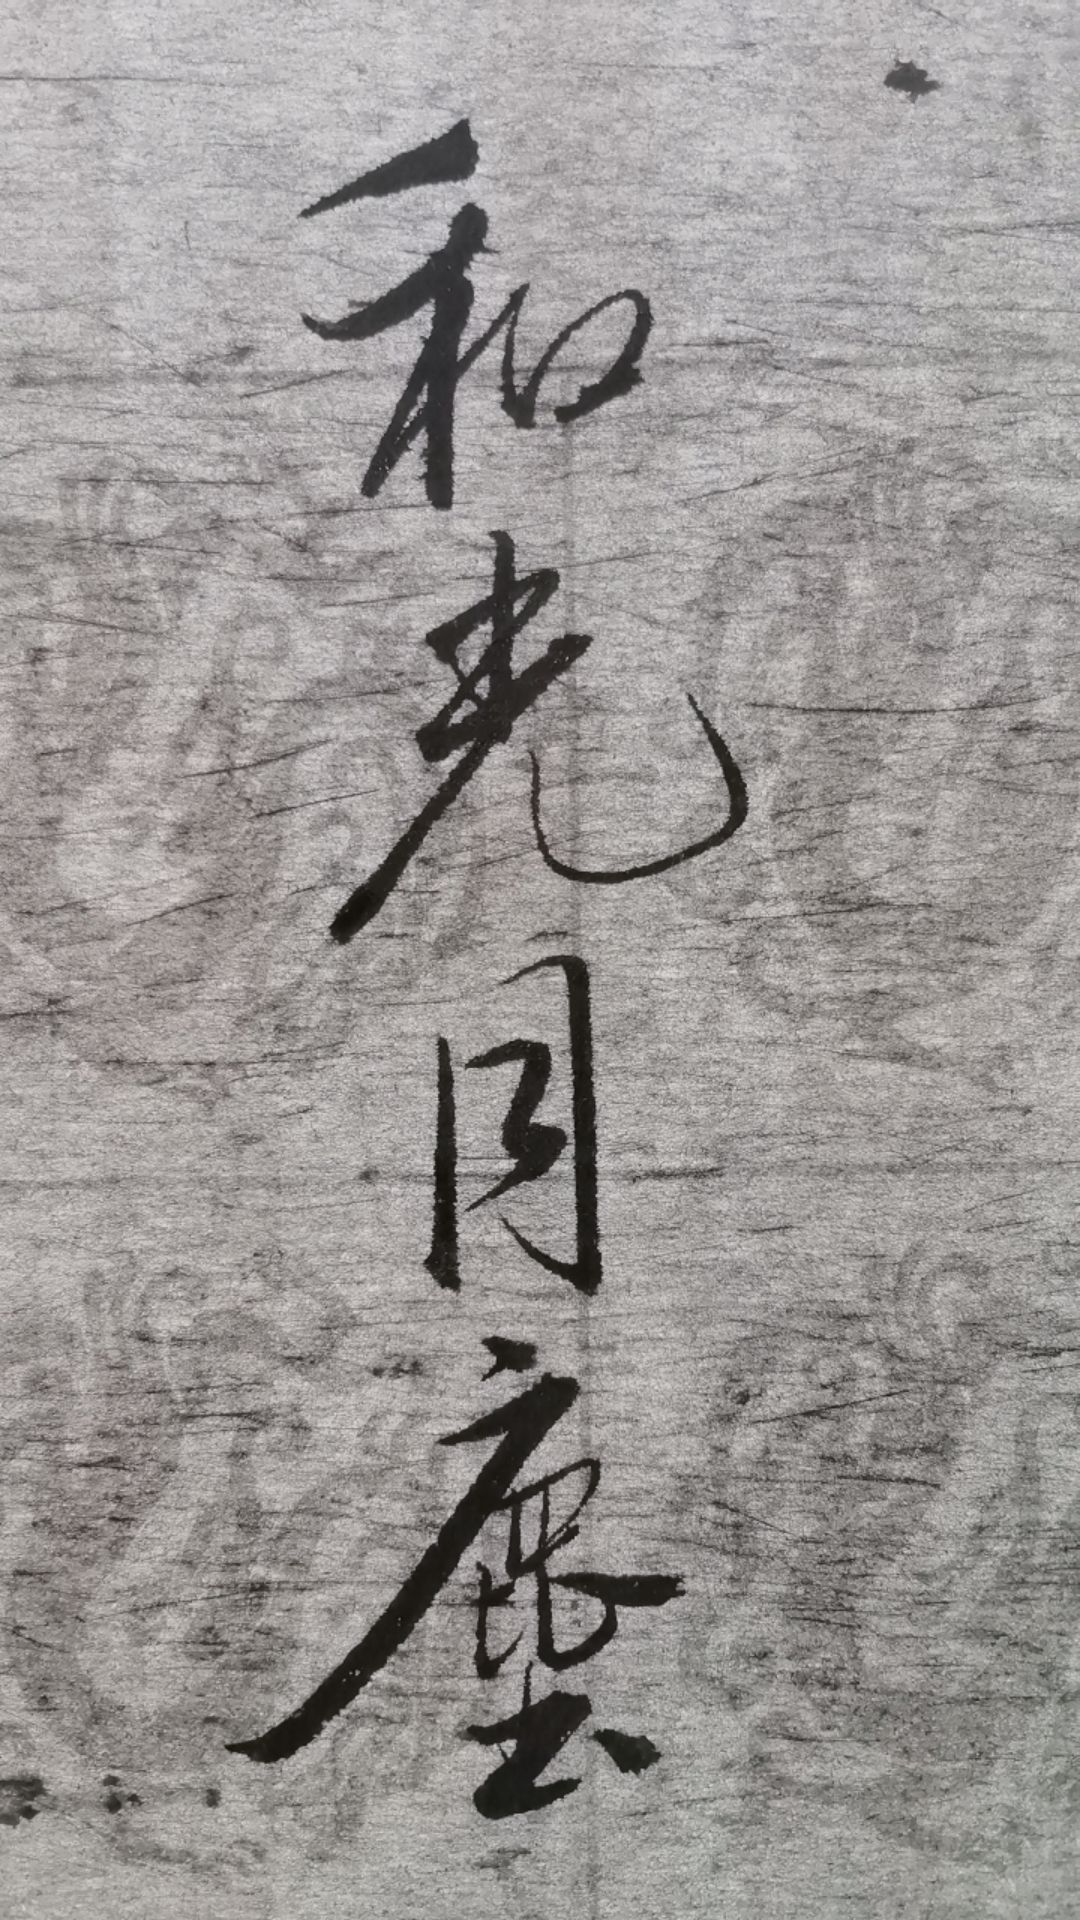 和光同塵